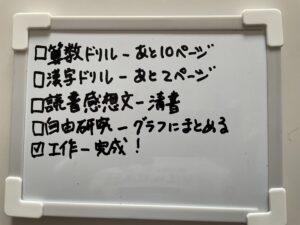 □算数ドリル－あと10ページ
□漢字ドリル－あと2ページ
□読書感想文－清書
□自由研究－グラフにまとめる
☑工作－完成！